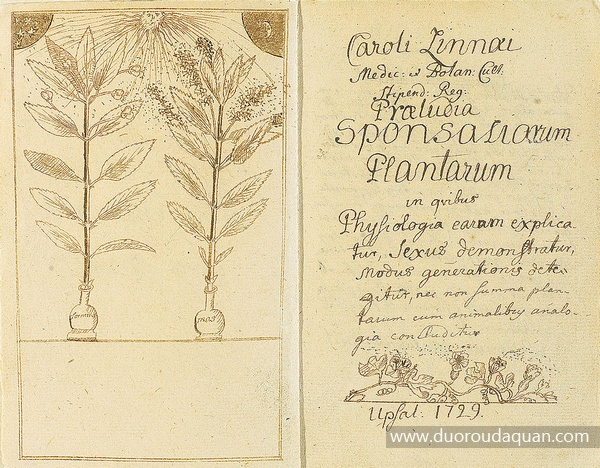 femina
mas
Caroli Linnæi
Medic: & Botan: Cult.
Stipend: Reg:
Præludia
Sponsaliorum
Plantarum
in qvibus
Physiologia earum explica-
tur, Sexus demonstratur,
Modus generationis dete-
gitur, nec non summa plan-
tarum cum animalibus analo-
gia concluditur
Upsal: 1729.
www.duoroudaquan.com